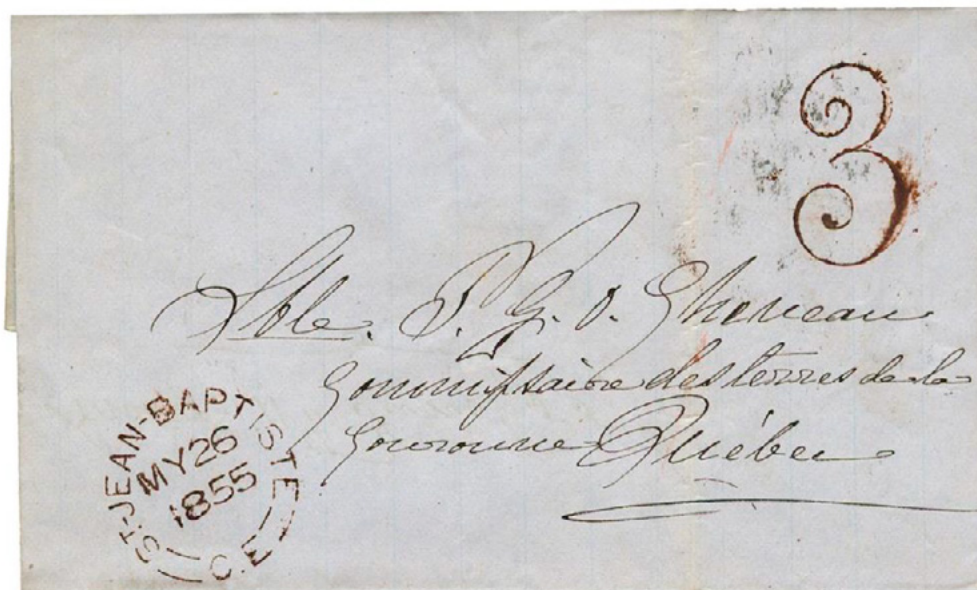 3
Hble. P. G. O. Chauveau
Commissaire des terres de la
Couronne Québec
ST-JEAN-BAPTISTE C.E
MY 26
1855